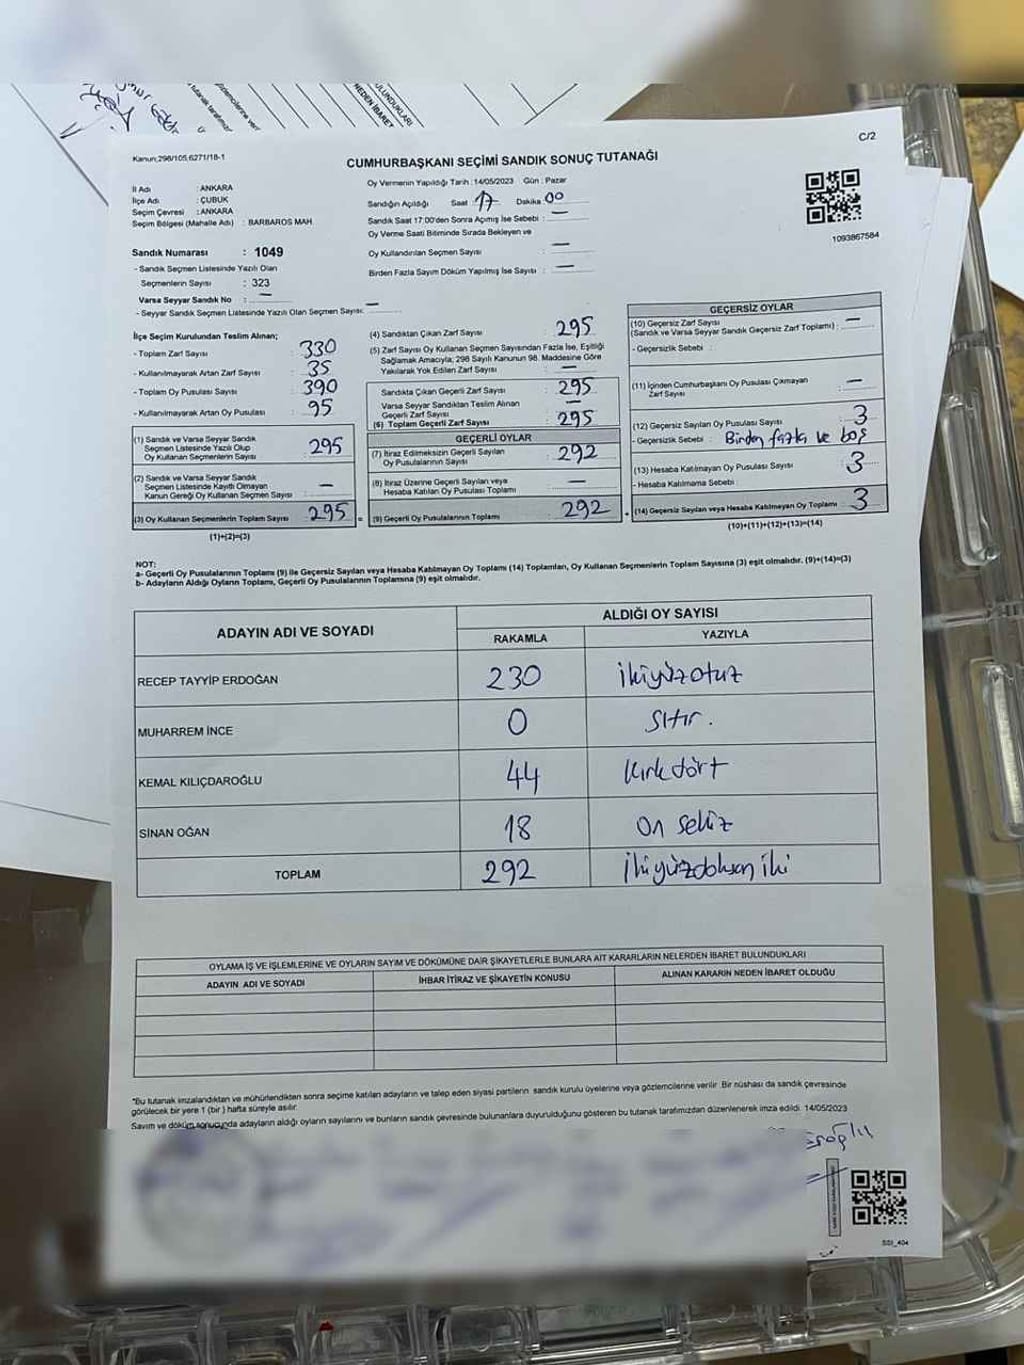 C/2
Kanun;298/105,6271/18-1
CUMHURBAŞKANI SEÇİMİ SANDIK SONUÇ TUTANAĞI
İl Adı : ANKARA
İlçe Adı : ÇUBUK
Seçim Çevresi : ANKARA
Seçim Bölgesi (Mahalle Adı) : BARBAROS MAH.
Oy Vermenin Yapıldığı Tarih : 14/05/2023 Gün : Pazar
Sandığın Açıldığı Saat 17 Dakika 00
Sandık Saat 17:00'den Sonra Açılmış İse Sebebi : —
Oy Verme Saati Bitiminde Sırada Bekleyen ve
Oy Kullandırılan Seçmen Sayısı : —
Birden Fazla Sayım Döküm Yapılmış İse Sayısı : —
1093867584
Sandık Numarası : 1049
- Sandık Seçmen Listesinde Yazılı Olan
Seçmenlerin Sayısı : 323
Varsa Seyyar Sandık No : —
- Seyyar Sandık Seçmen Listesinde Yazılı Olan Seçmen Sayısı: —
İlçe Seçim Kurulundan Teslim Alınan;
- Toplam Zarf Sayısı : 330
- Kullanılmayarak Artan Zarf Sayısı : 35
- Toplam Oy Pusulası Sayısı : 390
- Kullanılmayarak Artan Oy Pusulası : 95
(1) Sandık ve Varsa Seyyar Sandık
Seçmen Listesinde Yazılı Olup
Oy Kullanan Seçmenlerin Sayısı : 295
(2) Sandık ve Varsa Seyyar Sandık
Seçmen Listesinde Kayıtlı Olmayan
Kanun Gereği Oy Kullanan Seçmen Sayısı : —
(3) Oy Kullanan Seçmenlerin Toplam Sayısı : 295
(1)+(2)=(3)
(4) Sandıktan Çıkan Zarf Sayısı : 295
(5) Zarf Sayısı Oy Kullanan Seçmen Sayısından Fazla İse, Eşitliği
Sağlamak Amacıyla; 298 Sayılı Kanunun 98. Maddesine Göre
Yakılarak Yok Edilen Zarf Sayısı : —
Sandıkta Çıkan Geçerli Zarf Sayısı : 295
Varsa Seyyar Sandıktan Teslim Alınan
Geçerli Zarf Sayısı : —
(6) Toplam Geçerli Zarf Sayısı : 295
GEÇERLİ OYLAR
(7) İtiraz Edilmeksizin Geçerli Sayılan
Oy Pusulalarının Sayısı : 292
(8) İtiraz Üzerine Geçerli Sayılan veya
Hesaba Katılan Oy Pusulası Toplamı : —
(9) Geçerli Oy Pusulalarının Toplamı : 292
GEÇERSİZ OYLAR
(10) Geçersiz Zarf Sayısı
(Sandık ve Varsa Seyyar Sandık Geçersiz Zarf Toplamı) : —
- Geçersizlik Sebebi :
(11) İçinden Cumhurbaşkanı Oy Pusulası Çıkmayan
Zarf Sayısı : —
(12) Geçersiz Sayılan Oy Pusulası Sayısı : 3
- Geçersizlik Sebebi : Birden fazla ve boş
(13) Hesaba Katılmayan Oy Pusulası Sayısı : 3
- Hesaba Katılmama Sebebi :
(14) Geçersiz Sayılan veya Hesaba Katılmayan Oy Toplamı : 3
(10)+(11)+(12)+(13)=(14)
NOT:
a- Geçerli Oy Pusulalarının Toplamı (9) ile Geçersiz Sayılan veya Hesaba Katılmayan Oy Toplamı (14) Toplamları, Oy Kullanan Seçmenlerin Toplam Sayısına (3) eşit olmalıdır. (9)+(14)=(3)
b- Adayların Aldığı Oyların Toplamı, Geçerli Oy Pusulalarının Toplamına (9) eşit olmalıdır.
ADAYIN ADI VE SOYADI ALDIĞI OY SAYISI
RAKAMLA YAZIYLA
RECEP TAYYİP ERDOĞAN 230 ikiyüzotuz
MUHARREM İNCE 0 sıfır.
KEMAL KILIÇDAROĞLU 44 kırkdört
SİNAN OĞAN 18 on sekiz
TOPLAM 292 ikiyüzdoksan iki
OYLAMA İŞ VE İŞLEMLERİNE VE OYLARIN SAYIM VE DÖKÜMÜNE DAİR ŞİKAYETLERLE BUNLARA AİT KARARLARIN NELERDEN İBARET BULUNDUKLARI
ADAYIN ADI VE SOYADI İHBAR İTİRAZ VE ŞİKAYETİN KONUSU ALINAN KARARIN NEDEN İBARET OLDUĞU
*Bu tutanak imzalandıktan ve mühürlendikten sonra seçime katılan adayların ve talep eden siyasi partilerin sandık kurulu üyelerine veya gözlemcilerine verilir. Bir nüshası da sandık çevresinde
görülecek bir yere 1 (bir) hafta süreyle asılır.
Sayım ve döküm sonucunda adayların aldığı oyların sayılarını ve bunların sandık çevresinde bulunanlara duyurulduğunu gösteren bu tutanak tarafımızdan düzenlenerek imza edildi. 14/05/2023
SSI_404